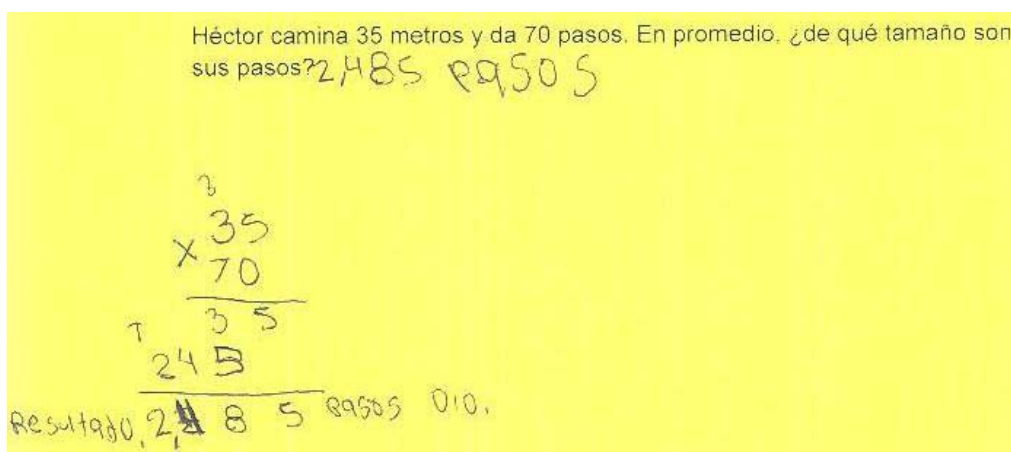 Héctor camina 35 metros y da 70 pasos. En promedio, ¿de qué tamaño son
sus pasos? 2,485 pasos
3
35
x 70
3 5
245
Resultado, 2,485 pasos DIO.